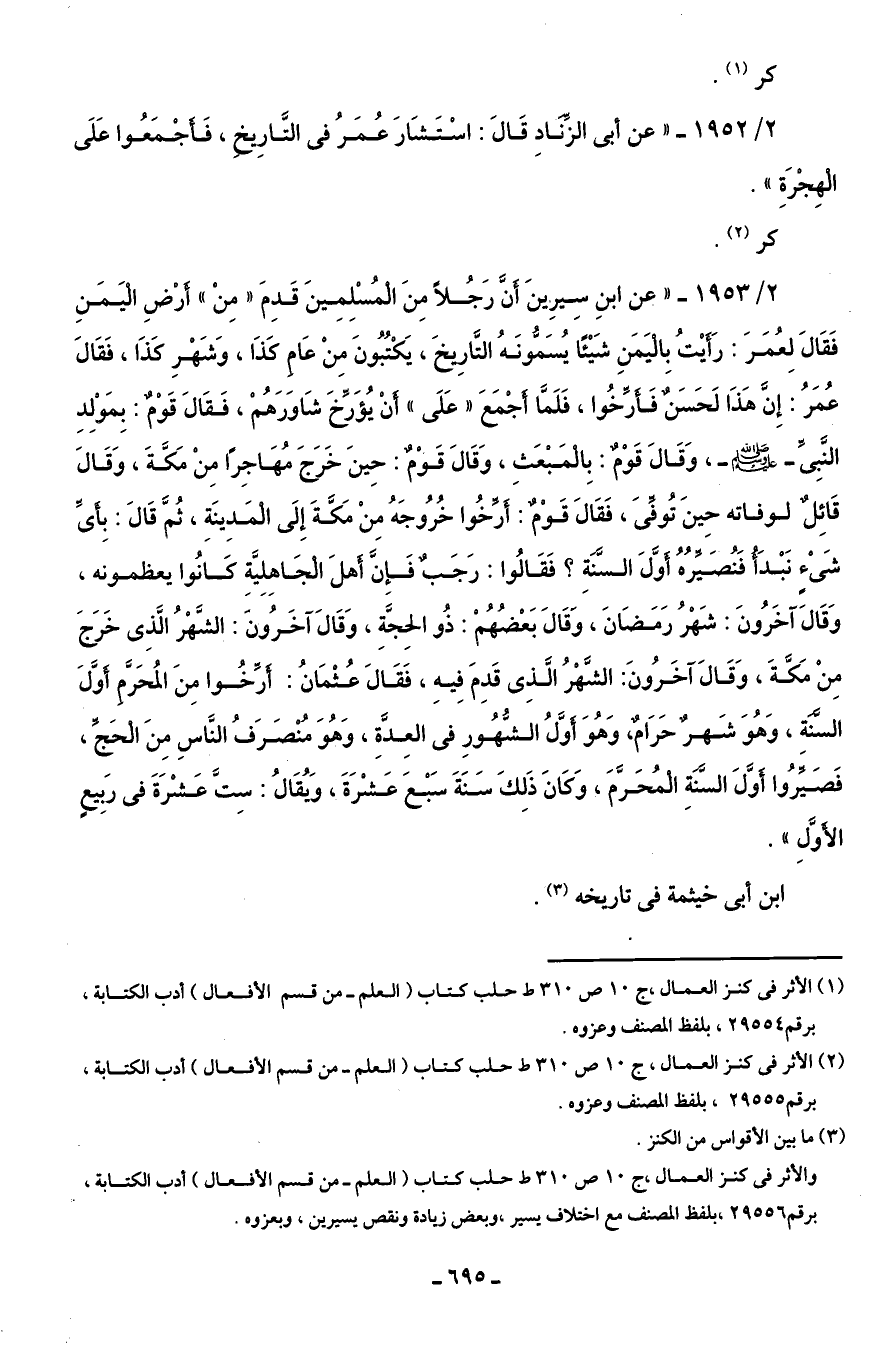 كر (١) .
١٩٥٢/٢ ـ « عن أبى الزِّنَادِ قَالَ : اسْتَشَارَ عُمَرُ فى التَّاريخِ ، فَأَجْمَعُوا عَلَى
الْهِجْرَةِ » .
كر (٢) .
١٩٥٣/٢ ـ « عن ابنِ سِيرِينَ أَنَّ رَجُلاً مِنَ الْمُسْلِمِينَ قَدِمَ « مِنْ » أَرْضِ الْيَمَنِ
فَقَالَ لِعُمَرَ : رَأَيْتُ بِالْيَمَنِ شَيْئًا يُسَمُّونَهُ التَّارِيخَ ، يَكْتُبُونَ مِنْ عَامِ كَذَا ، وَشَهْرِ كَذَا ، فَقَالَ
عُمَرُ : إِنَّ هَذَا لَحَسَنٌ فَأَرِّخُوا ، فَلَمَّا أَجْمَعَ « عَلَى » أَنْ يُؤَرِّخَ شَاوَرَهُمْ ، فَقَالَ قَوْمٌ : بِمَوْلِدِ
النَّبِىِّ ـ ﷺ ـ ، وَقَالَ قَوْمٌ : بِالْمَبْعَثِ ، وَقَالَ قَوْمٌ : حِينَ خَرَجَ مُهَاجِرًا مِنْ مَكَّةَ ، وَقَالَ
قَائِلٌ لوفاته حِينَ تُوفِّىَ ، فَقَالَ قَوْمٌ : أَرِّخُوا خُرُوجَهُ مِنْ مَكَّةَ إِلَى الْمَدِينَةِ ، ثُمَّ قَالَ : بِأَىِّ
شَىْءٍ نَبْدَأُ فَنُصَيِّرُهُ أَوَّلَ السَّنَةِ ؟ فَقَالُوا : رَجَبٌ فَإِنَّ أَهلَ الجَاهليَّةِ كَانُوا يعظمونه ،
وَقَالَ آخَرُونَ : شَهْرُ رَمَضَانَ ، وَقَالَ بَعْضُهُمْ : ذُو الحِجَّةِ ، وَقَالَ آخَرُونَ : الشَّهْرُ الَّذِى خَرَجَ
مِنْ مَكَّةَ ، وَقَالَ آخَرُونَ: الشَّهْرُ الَّذِى قَدِمَ فِيهِ ، فَقَالَ عُثْمَانُ : أَرِّخُوا مِنَ الْمُحَرَّمِ أَوَّلَ
السَّنَةِ ، وَهُوَ شَهرٌ حَرَامٌ، وَهُوَ أَوَّلُ الشُّهُورِ فى العِدَّةِ ، وَهُوَ مُنْصَرَفُ النَّاسِ مِنَ الْحَجِّ ،
فَصَيِّرُوا أَوَّلَ السَّنَةِ الْمُحَرَّمَ ، وَكَانَ ذَلِكَ سَنَةَ سَبْعَ عَشْرَةَ ، وَيُقَالُ : سِتَّ عَشْرَةَ فى رَبِيعٍ
الأَوَّلِ » .
ابن أبى خيثمة فى تاريخه (٣) .
(١) الأثر فى كنز العمال ،ج ١٠ ص ٣١٠ ط حلب كتاب ( العلم ـ من قسم الأفعال ) أدب الكتابة ،
برقم ٢٩٥٥٤ ، بلفظ المصنف وعزوه .
(٢) الأثر فى كنز العمال ، ج ١٠ ص ٣١٠ ط حلب كتاب ( العلم ـ من قسم الأفعال ) أدب الكتابة ،
برقم٢٩٥٥٥ ، بلفظ المصنف وعزوه .
(٣) ما بين الأقواس من الكنز .
والأثر فى كنز العمال ،ج ١٠ ص ٣١٠ ط حلب كتاب ( العلم ـ من قسم الأفعال ) أدب الكتابة ،
برقم٢٩٥٥٦ ،بلفظ المصنف مع اختلاف يسير ،وبعض زيادة ونقص يسيرين ، وبعزوه .
ـ ٦٩٥ ـ